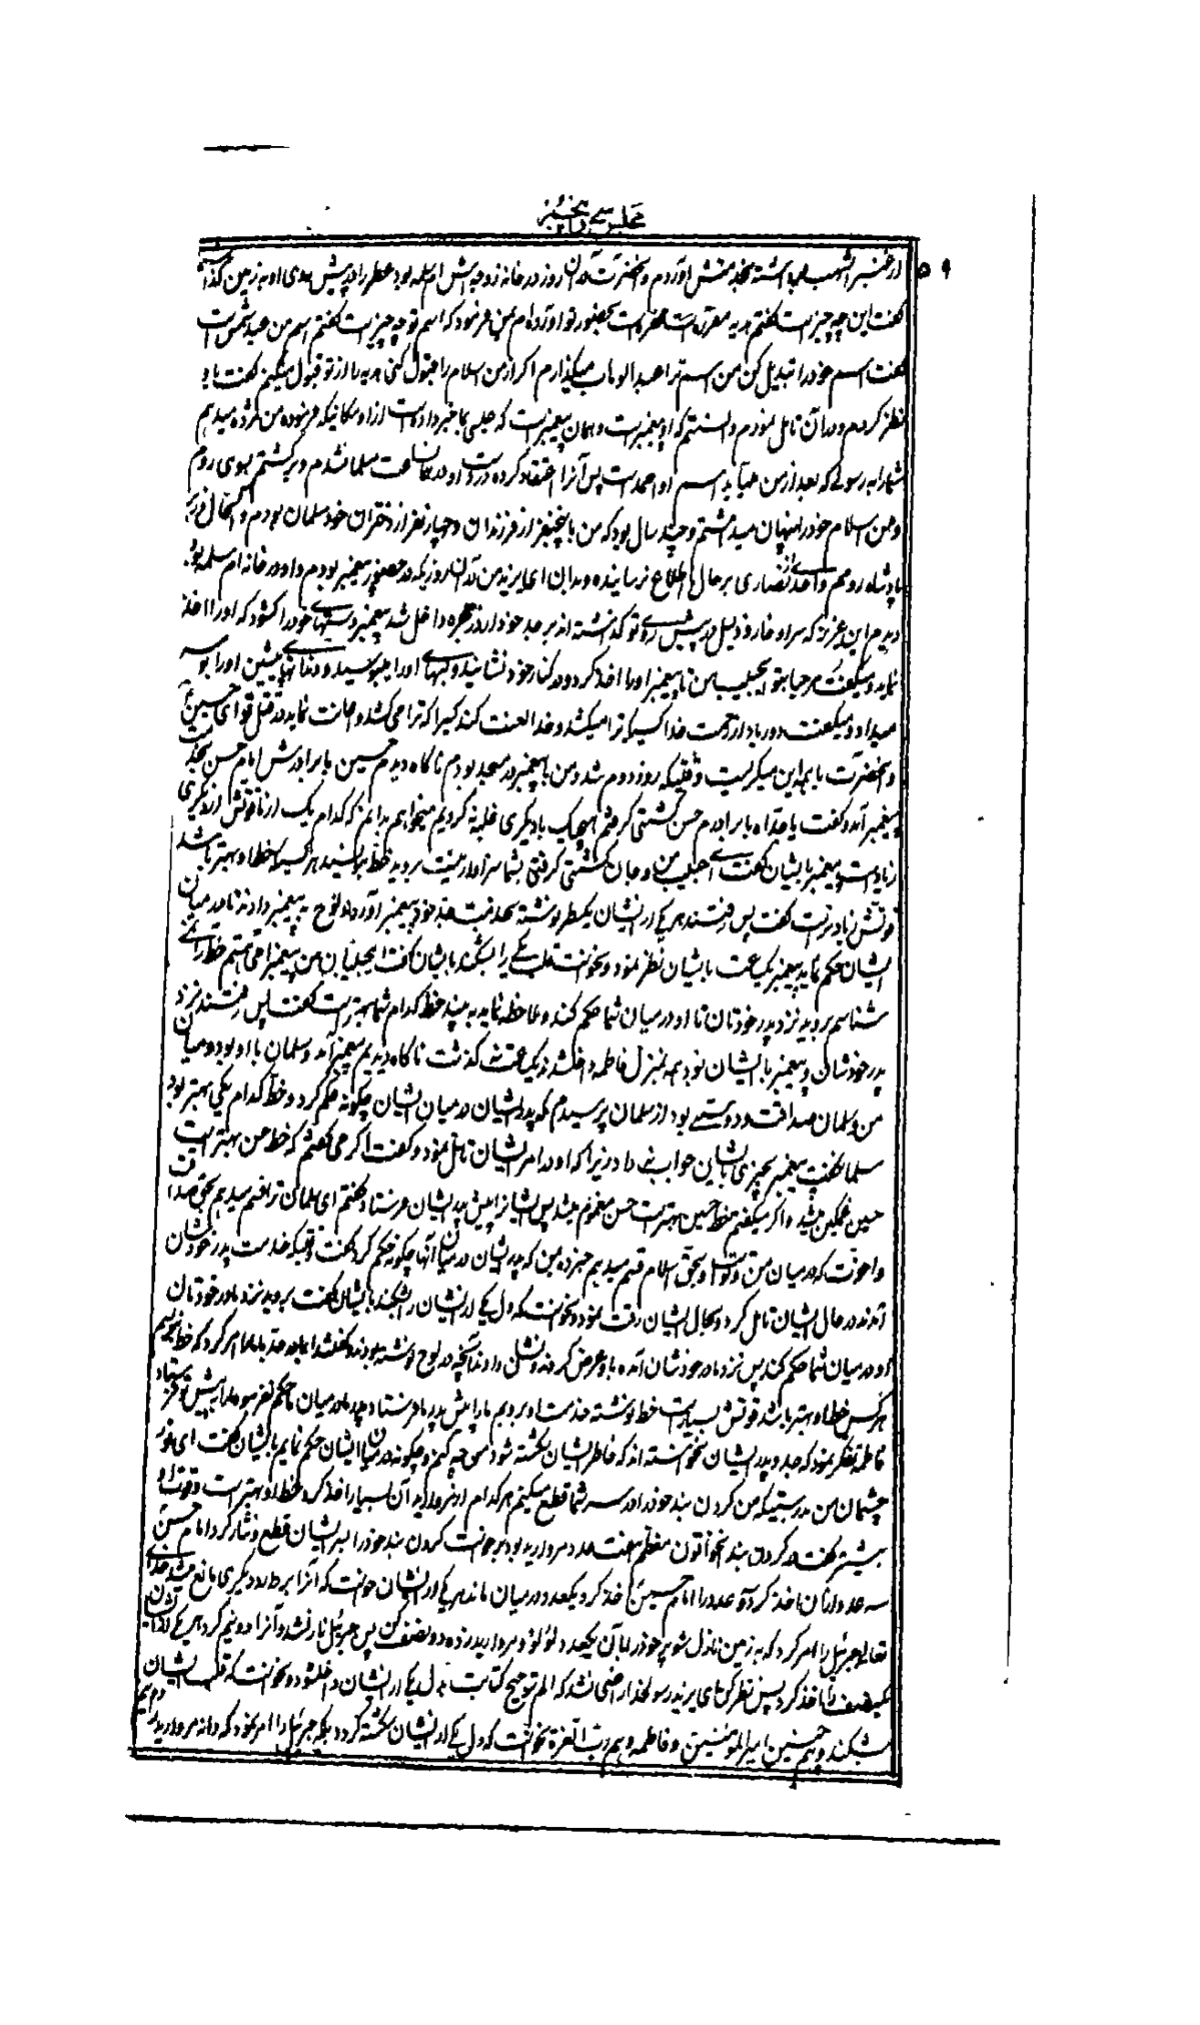 مجلس سی و پنجم
۵۹
از عنبر اشهب برداشته بخدمتش آوردم و آنحضرت در آن روز در خانه زوجه اش ام سلمه بود عطر را در پیش روی او بزمین گذاشتم
گفت این چه چیز است گفتم هدیه محقر است بحضور تو آورده ام بمن فرمود که اسم تو چه چیز است گفتم اسم من عبد شمس است
گفت اسم خود را تبدیل کن من اسم ترا عبد الوهاب میگذارم اگر از من اسلام را قبول کنی هدیه را از تو قبول میکنم گفت باو
نظر کردم و در آن تامل نمودم دانستم که او پیغمبر است و همان پیغمبر است که عیسی بما خبر داده است از او مکانیکه فرموده من مژده میدهم
شما را به رسولی که بعد از من میآید اسم او احمد است پس آنرا اعتقاد کرده در دست او در همان ساعت مسلمان شدم و برگشتم بسوی روم
و من اسلام خود را پنهان میداشتم و چند سال بود که من با پنج نفر از فرزندان و چهار نفر از دختران خود مسلمان بودم و الحال وزیر
پادشاه رومم و احدی از نصاری بر حال ما اطلاع نرسانیده و بدان ای یزید من در آن روزیکه در حضور پیغمبر بودم و او در خانه ام سلمه بود
دیدم این عزیز که سر او خار و ذلیل در پیش روی تو گذاشته اند بر جد خود از در حجره داخل شد پیغمبر دستهای خود را کشود که او را اخذ
نماید و میگفت مرحبا بتو ای حبیب من تا پیغمبر او را اخذ کرد و در کنار خود نشانید و لبهای او را میبوسید و دندانهای پیشین او را بوسه
میداد و میگفت دور باد از رحمت خدا کسیکه ترا میکشد و خدا لعنت کند کسیرا که ترا می کشد و اعانت نماید در قتل تو ای حسین
و آنحضرت با همه این میگریست وقتیکه روز دوم شد و من با پیغمبر در مسجد بودم ناگاه دیدم حسین با برادرش امام حسن بخدمت
پیغمبر آمد و گفت یا جداه با برادرم حسن کشتی گرفتم هیچیک بدیگری غلبه نکردیم میخواهیم بدانیم که کدام یک از ما قوتش از دیگری
زیاد است پیغمبر بایشان گفت ای حبیب من و جان من کشتی گرفتن بشما سزاوار نیست بروید خط بنویسید هر کس خط او بهتر باشد
قوتش زیادتر است گفت پس رفتند هر یک از ایشان یکسطر نوشته بخدمت جد خود پیغمبر آورده لوح به پیغمبر دادند تا در میان
ایشان حکم نماید پیغمبر یکساعت بایشان نظر نمود و نخواست قلب یکی را بشکند بایشان گفت ای حبیبان من پیغمبر امی هستم خط را نمی
شناسم بروید نزد پدر خودتان تا او در میان شما حکم کند و ملاحظه نماید به بیند خط کدام شما بهتر است گفت پس رفتند نزد
پدر خودشان و پیغمبر با ایشان بود همه بمنزل فاطمه داخل شدند یکساعت نگذشت ناگاه دیدیم پیغمبر آمد و سلمان با او بود و میان
من و سلمان صداقت و دوستی بود از سلمان پرسیدم که پدر ایشان در میان ایشان چگونه حکم کرد و خط کدام یکی بهتر بود
سلمان گفت پیغمبر بچیزی بایشان جواب نداد زیرا که او در امر ایشان تامل نمود و گفت اگر می گفتم که خط حسن بهتر است
حسین غمگین میشد و اگر میگفتم خط حسین بهتر است حسن مغموم میشد پس ایشانرا پیش پدر ایشان فرستاد گفتم ای سلمان ترا قسم میدهم بحق صداقت
و اخوت که در میان من و تو است و بحق اسلام قسم میدهم خبر ده بمن که پدر ایشان در میان آنها چگونه حکم کرد گفت وقتیکه خدمت پدر خودشان
آمدند در حال ایشان تامل کرد و بحال ایشان رقت نمود و نخواست که دل یکی از ایشان را بشکند بایشان گفت بروید نزد مادر خودتان
او در میان شما حکم کند پس نزد مادر خودشان آمده باو عرض کردند و نشان دادند آنچه در لوح نوشته بودند و گفتند ای مادر جد ما بما امر کرد که خط بنویسیم
هر کس خط او بهتر باشد قوتش بسیار است خط نوشته خدمت او بردیم ما را پیش پدر ما فرستاد پدر ما در میان ما حکم نفرموده ما را پیش تو فرستاد
فاطمه تفکر نمود که جد و پدر ایشان نخواسته اند که خاطر ایشان شکسته شود من چه کنم و چگونه در میان ایشان حکم نمایم بایشان گفت ای نور
چشمان من بدرستیکه من گردن بند خود را در سر شما قطع میکنم هر کدام از مروارید آن بسیار اخذ کرد خط او بهتر است و قوت او
بیشتر گفت در گردن بند آنخاتون معظم هفت عدد مروارید بود برخواست گردن بند خود را بسر ایشان قطع و نثار کرد امام حسن
سه عدد از آن اخذ کرد و سه عدد را امام حسین اخذ کرد و یکعدد در میان ماند هر یک از ایشان خواست که آنرا بردارد دیگری مانع میشد خدای
تعالی جبرئیل را امر کرد که به زمین نازل شو پر خود را بآن یکعدد لؤلؤ و مروارید زده دو نصف کن پس جبرئیل نازل شد و آنرا دو نیم کرد هر یکی از ایشان
یکنصف را اخذ کرد پس نظر کن ای یزید رسولخدا راضی نشد که الم ترجیح کتابت بدل یکی از ایشان داخل شود و نخواست که قلب ایشان
بشکند و همچنین امیرالمؤمنین و فاطمه و هم رب العزة نخواست که دل یکی از ایشان شکسته گردد بلکه جبرئیل را امر نمود که دانه مروارید را دو نیم